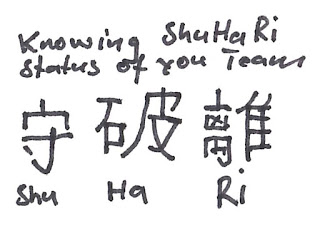 Knowing ShuHaRi
Status of you Team
守破離
Shu Ha Ri